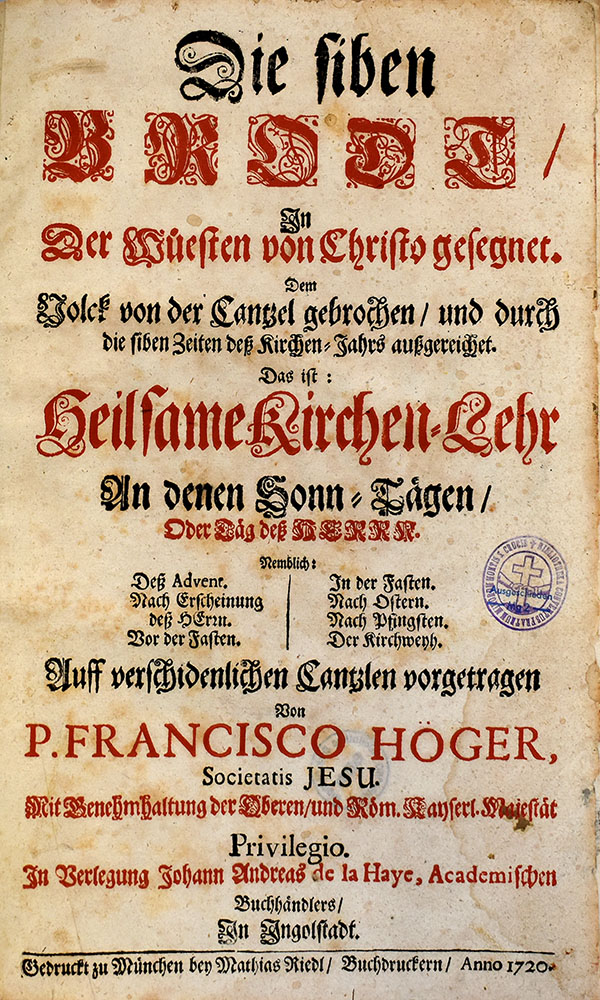 Die siben
BRODT /
In
Der Wüesten von Christo gesegnet.
Dem
Volck von der Cantzel gebrochen / und durch
die siben Zeiten deß Kirchen-Jahrs außgereichet.
Das ist:
Heilsame Kirchen-Lehr
An denen Sonn-Tägen /
Oder Täg deß HERRN.
Nemblich:
Deß Advent.
Nach Erscheinung
deß HErrn.
Vor der Fasten.
In der Fasten.
Nach Ostern.
Nach Pfingsten.
Der Kirchweyh.
Auff verschidenlichen Cantzlen vorgetragen
Von
P. FRANCISCO HÖGER,
Societatis JESU.
Mit Genehmhaltung der Oberen / und Röm. Kayserl. Majestät
Privilegio.
In Verlegung Johann Andreas de la Haye, Academischen
Buchhändlers /
In Ingolstadt.
Gedruckt zu München bey Mathias Riedl / Buchdruckern / Anno 1720.
Ausgeschieden